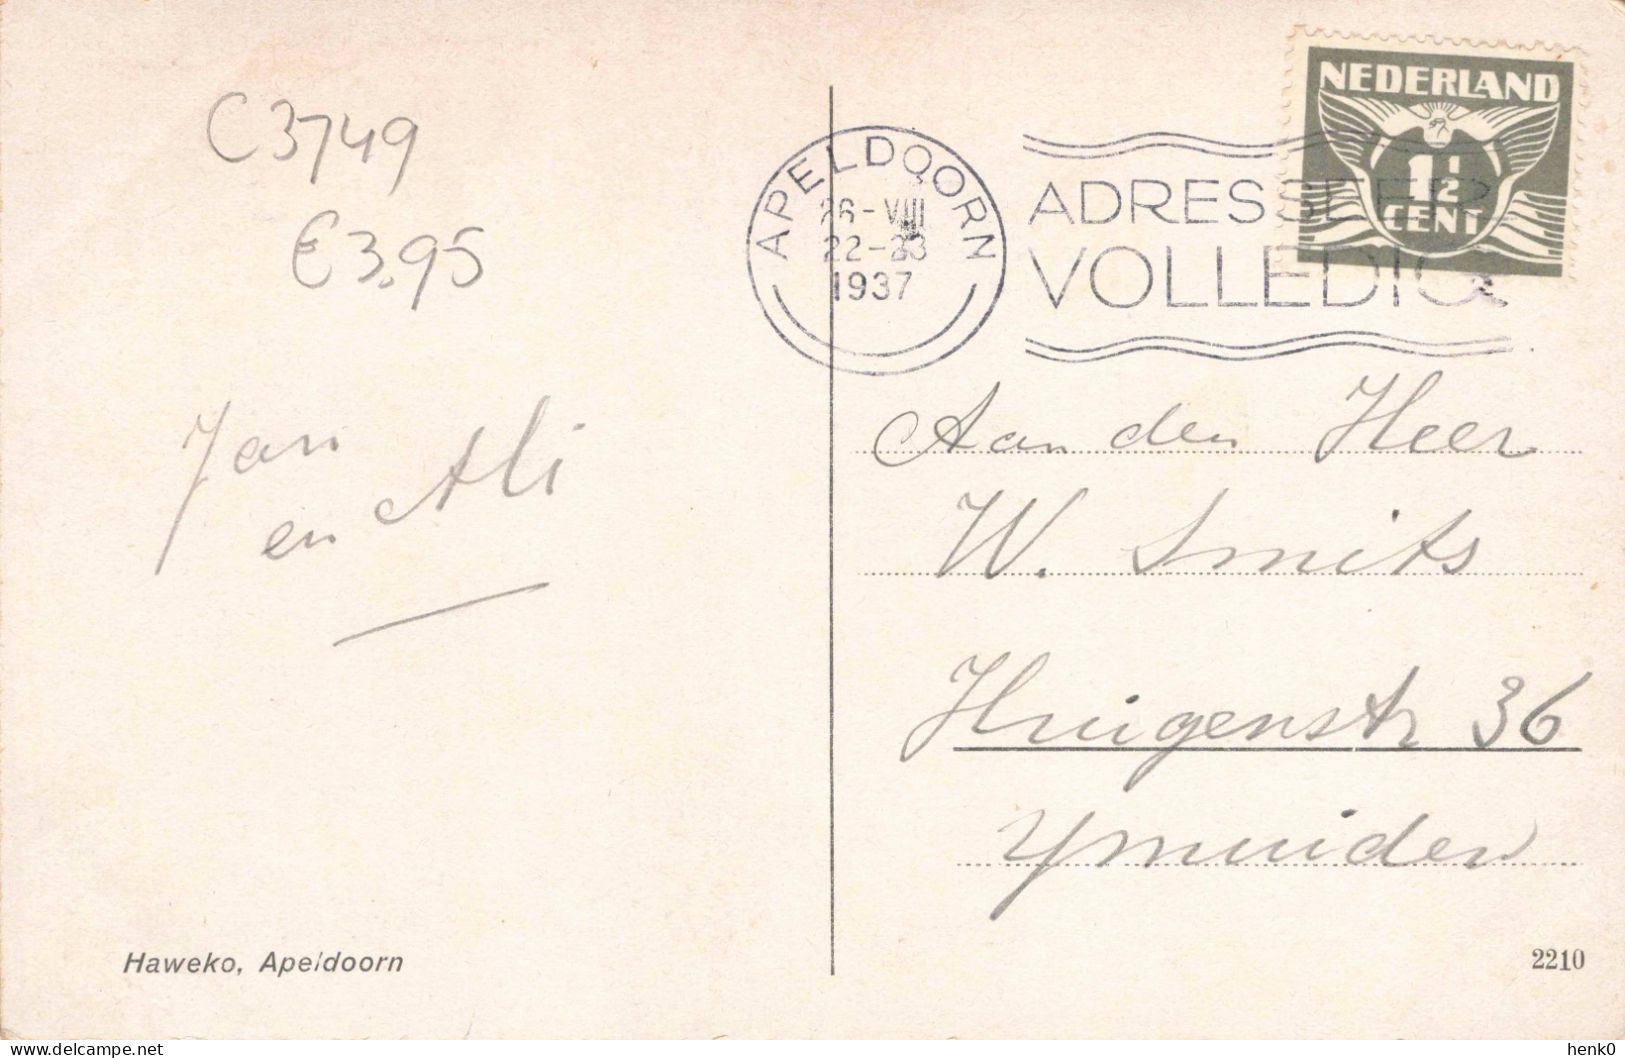 C3749
€3,95
NEDERLAND
1½
CENT
APELDOORN
26-VIII
22-23
1937
ADRESSEER
VOLLEDIG
Jan
en Ali
Aan den Heer
W. Smits
Huigenstr 36
Ymuiden
Haweko, Apeldoorn
2210
delcampe.net
henk0